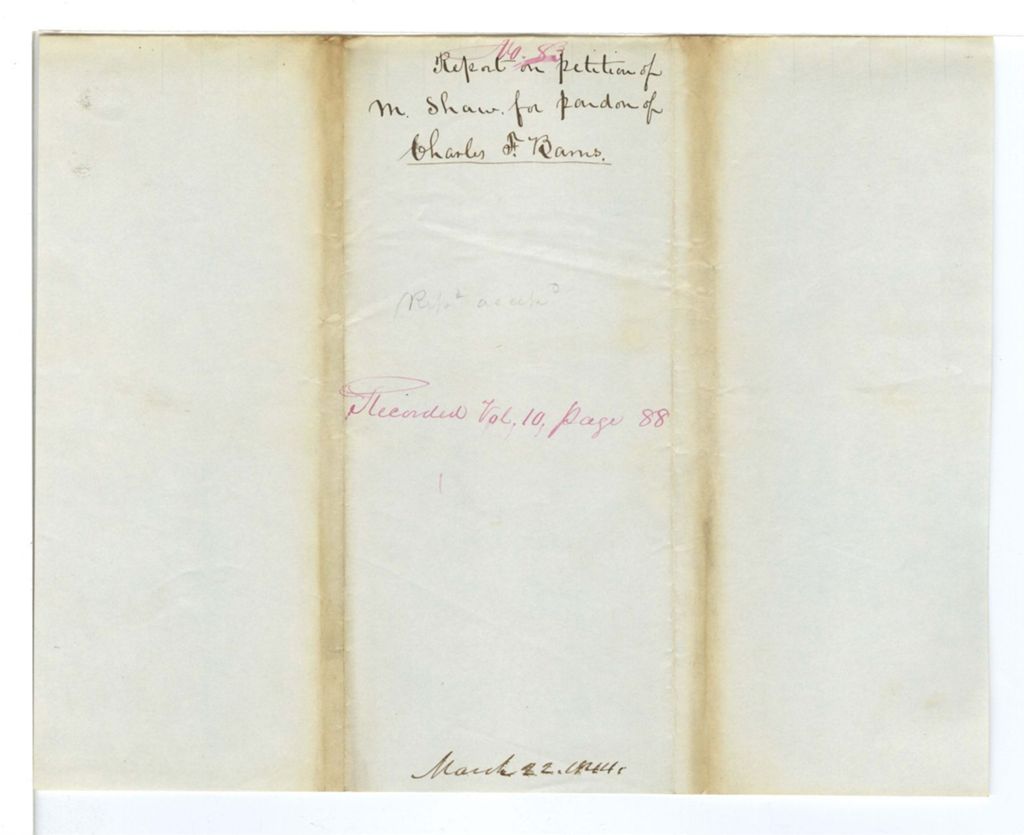 No. 83
Report on petition of
M. Shaw. for pardon of
Charles F. Barns.
Rept accepd
Recorded Vol. 10, page 88
March 22. 1844.